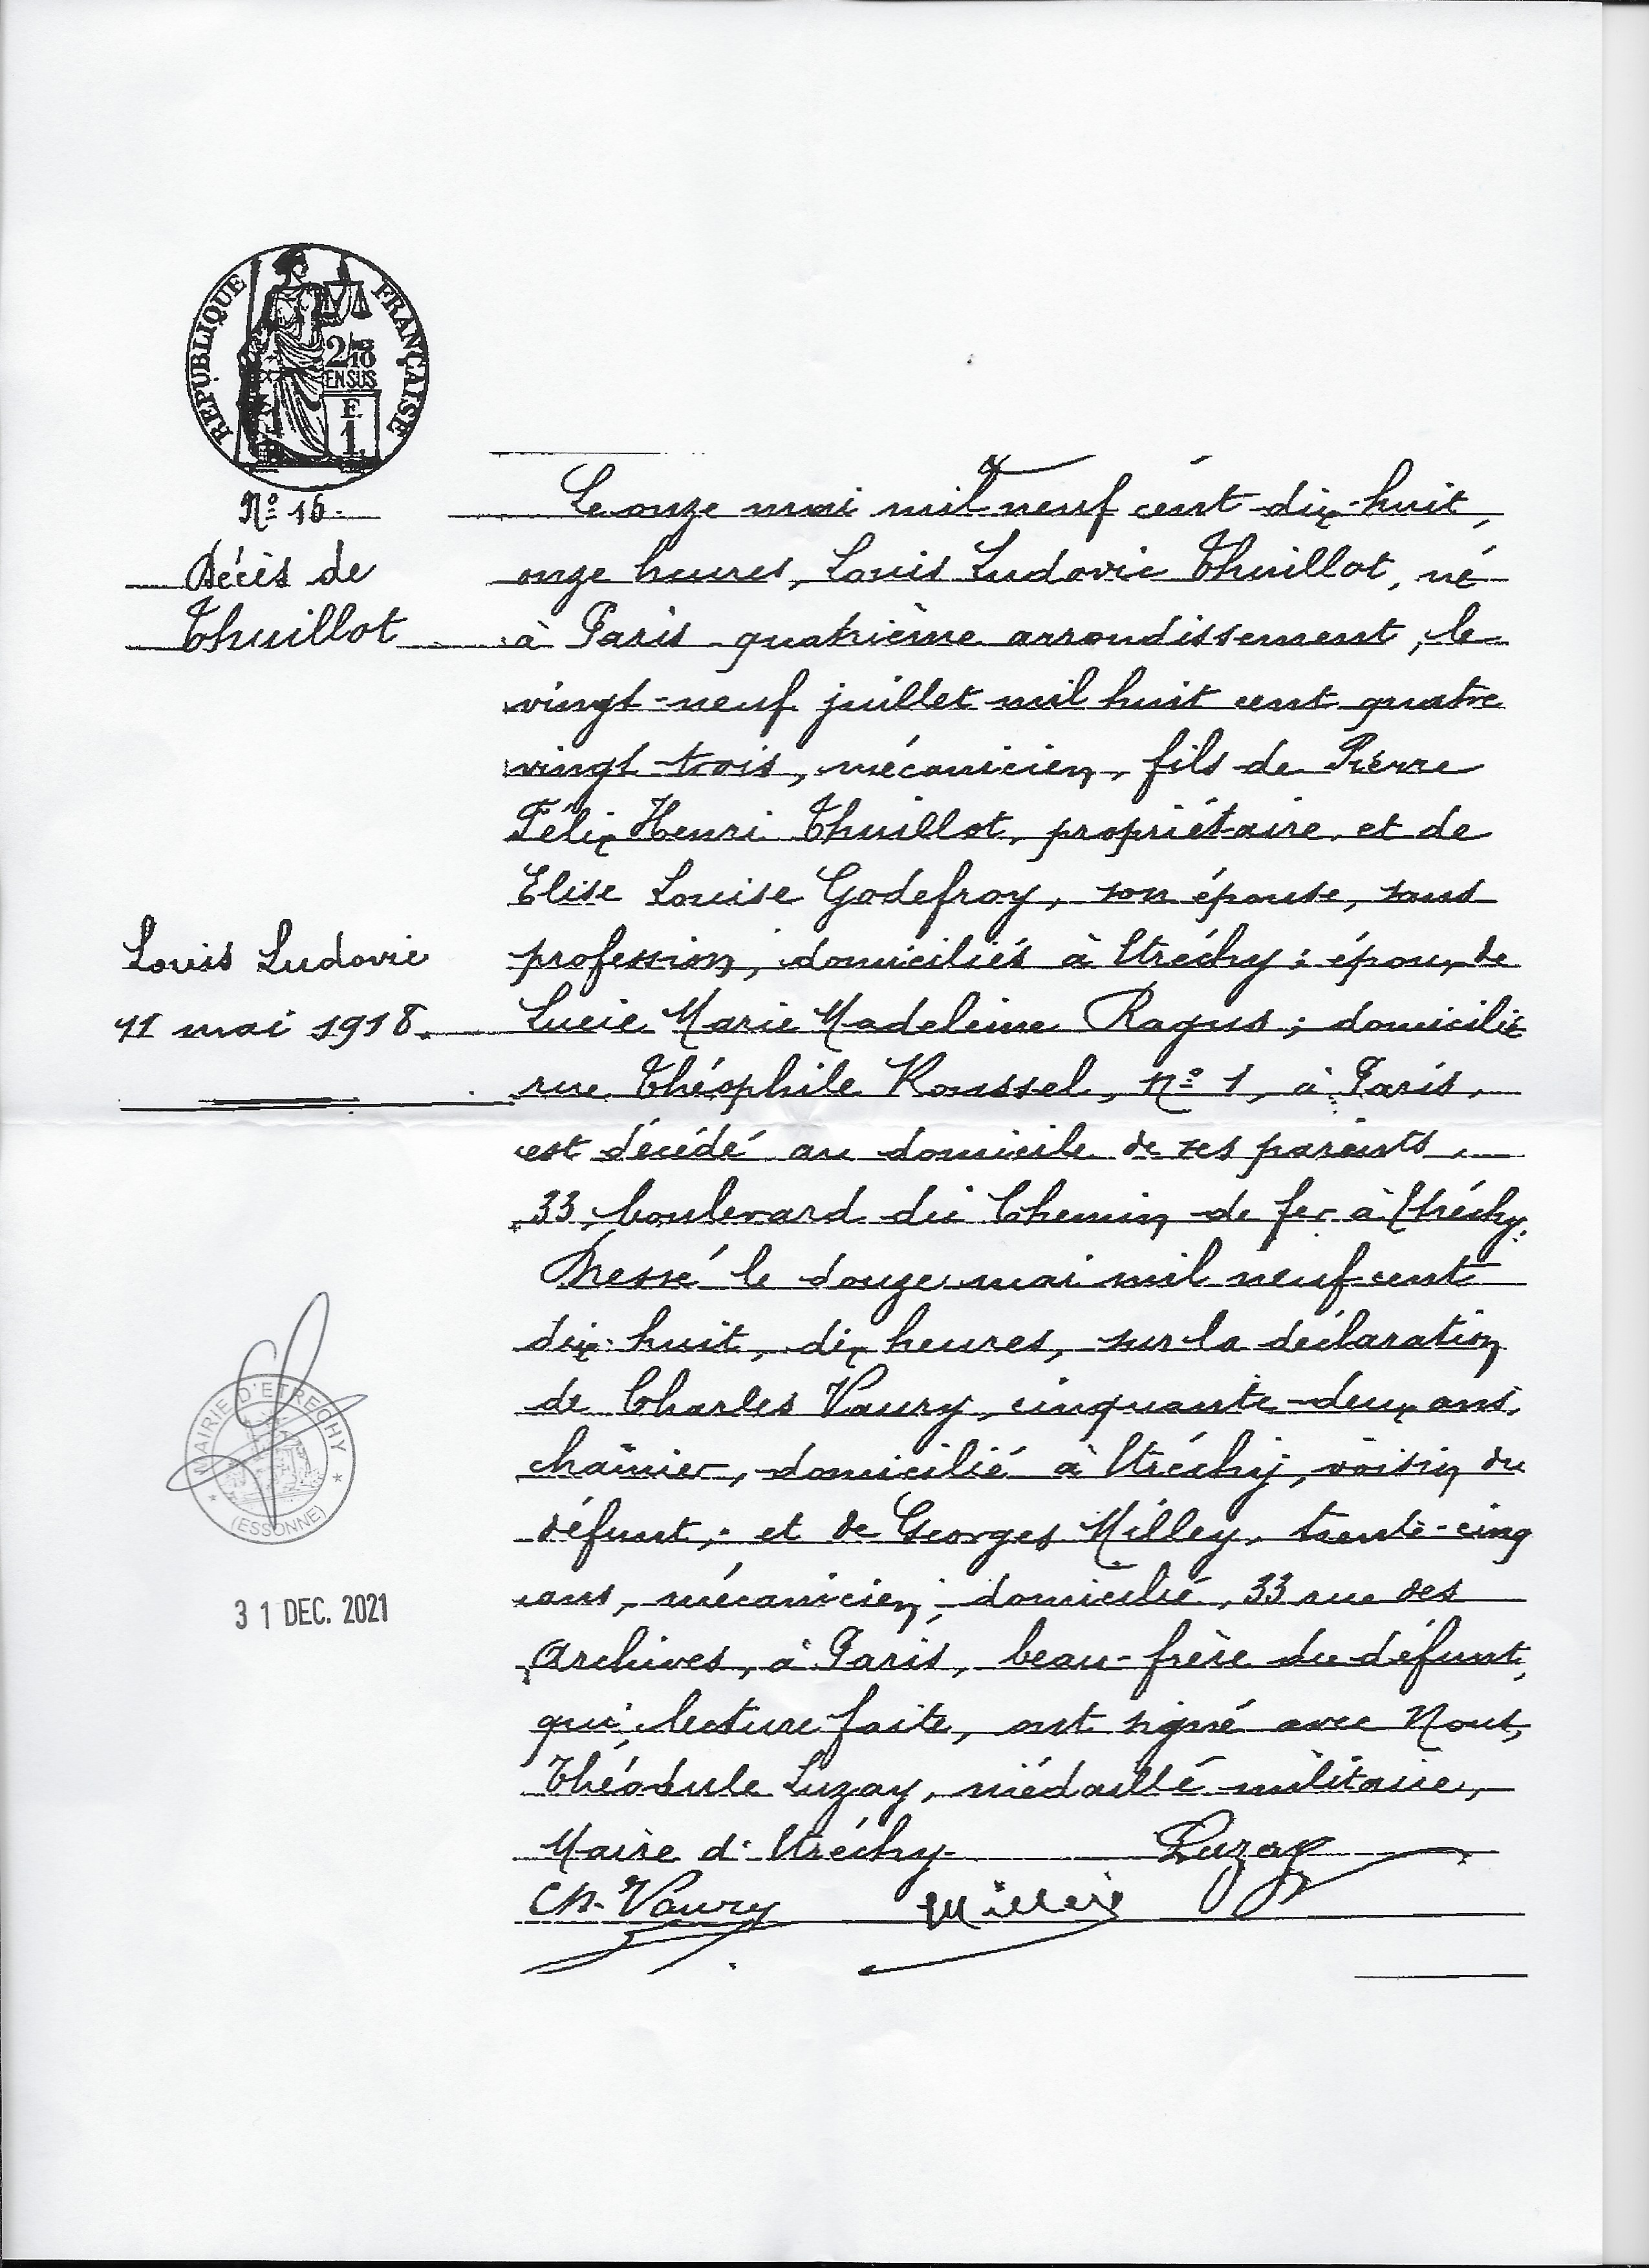 REPUBLIQUE FRANÇAISE
2/10
EN SUS
E.
1.
N° 16.
Décès de
Thuillot
Louis Ludovic
11 mai 1918.
Le onze mai mil neuf cent dix-huit,
onze heures, Louis Ludovic Thuillot, né
à Paris quatrième arrondissement, le
vingt-neuf juillet mil huit cent quatre
vingt trois, mécanicien, fils de Pierre
Félix Henri Thuillot, propriétaire, et de
Elise Louise Godefroy, son épouse, sans
profession, domiciliés à Etréchy; époux de
Lucie Marie Madeleine Ragus; domicilié
rue Théophile Roussel, n° 1, à Paris,
est décédé au domicile de ses parents,
33, boulevard du Chemin de fer à Etréchy.
Dressé le douze mai mil neuf cent
dix-huit, dix heures, sur la déclaration
de Charles Vaury, cinquante-deux ans,
domicilié à Etréchy, voisin du
défunt; et de Georges Milley, trente-cinq
ans, mécanicien, domicilié, 33 rue des
Archives, à Paris, beau-frère du défunt,
qui, lecture faite, ont signé avec Nous,
Théodule Luzay, médaillé militaire,
Maire d'Etréchy. Luzay
Ch. Vaury
MAIRIE D'ETRECHY
(ESSONNE)
31 DEC. 2021